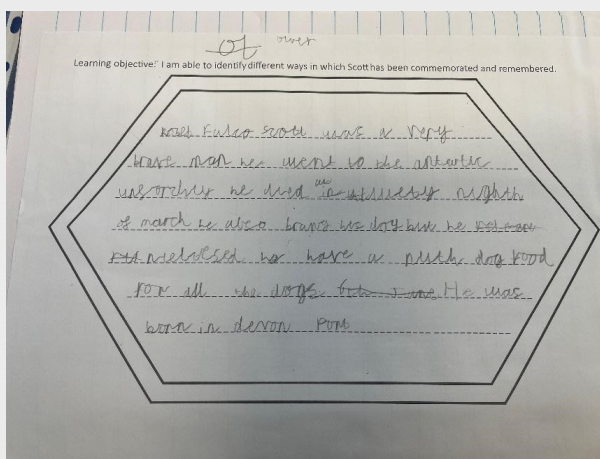 Of over
Learning objective: I am able to identify different ways in which Scott has been commemorated and remembered.
Falco scott was a very
brave man he went to the antartic
he died nighth
of march he also brang his dog but he
he have a dog food
for all the dogs He was
born in devon Port